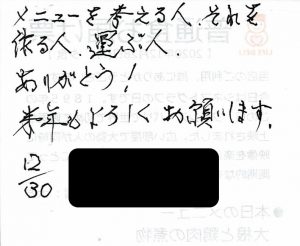 メニューを考える人、それを
作る人、運ぶ人、
ありがとう！
来年もよろしくお願いします。
12/30